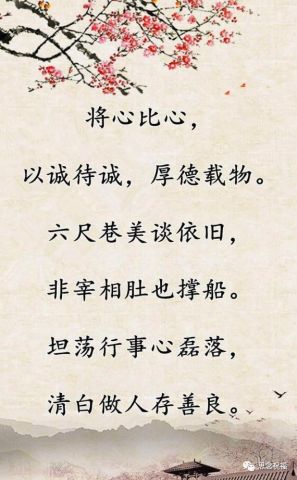 将心比心，
以诚待诚，厚德载物。
六尺巷美谈依旧，
非宰相肚也撑船。
坦荡行事心磊落，
清白做人存善良。
思念祝福